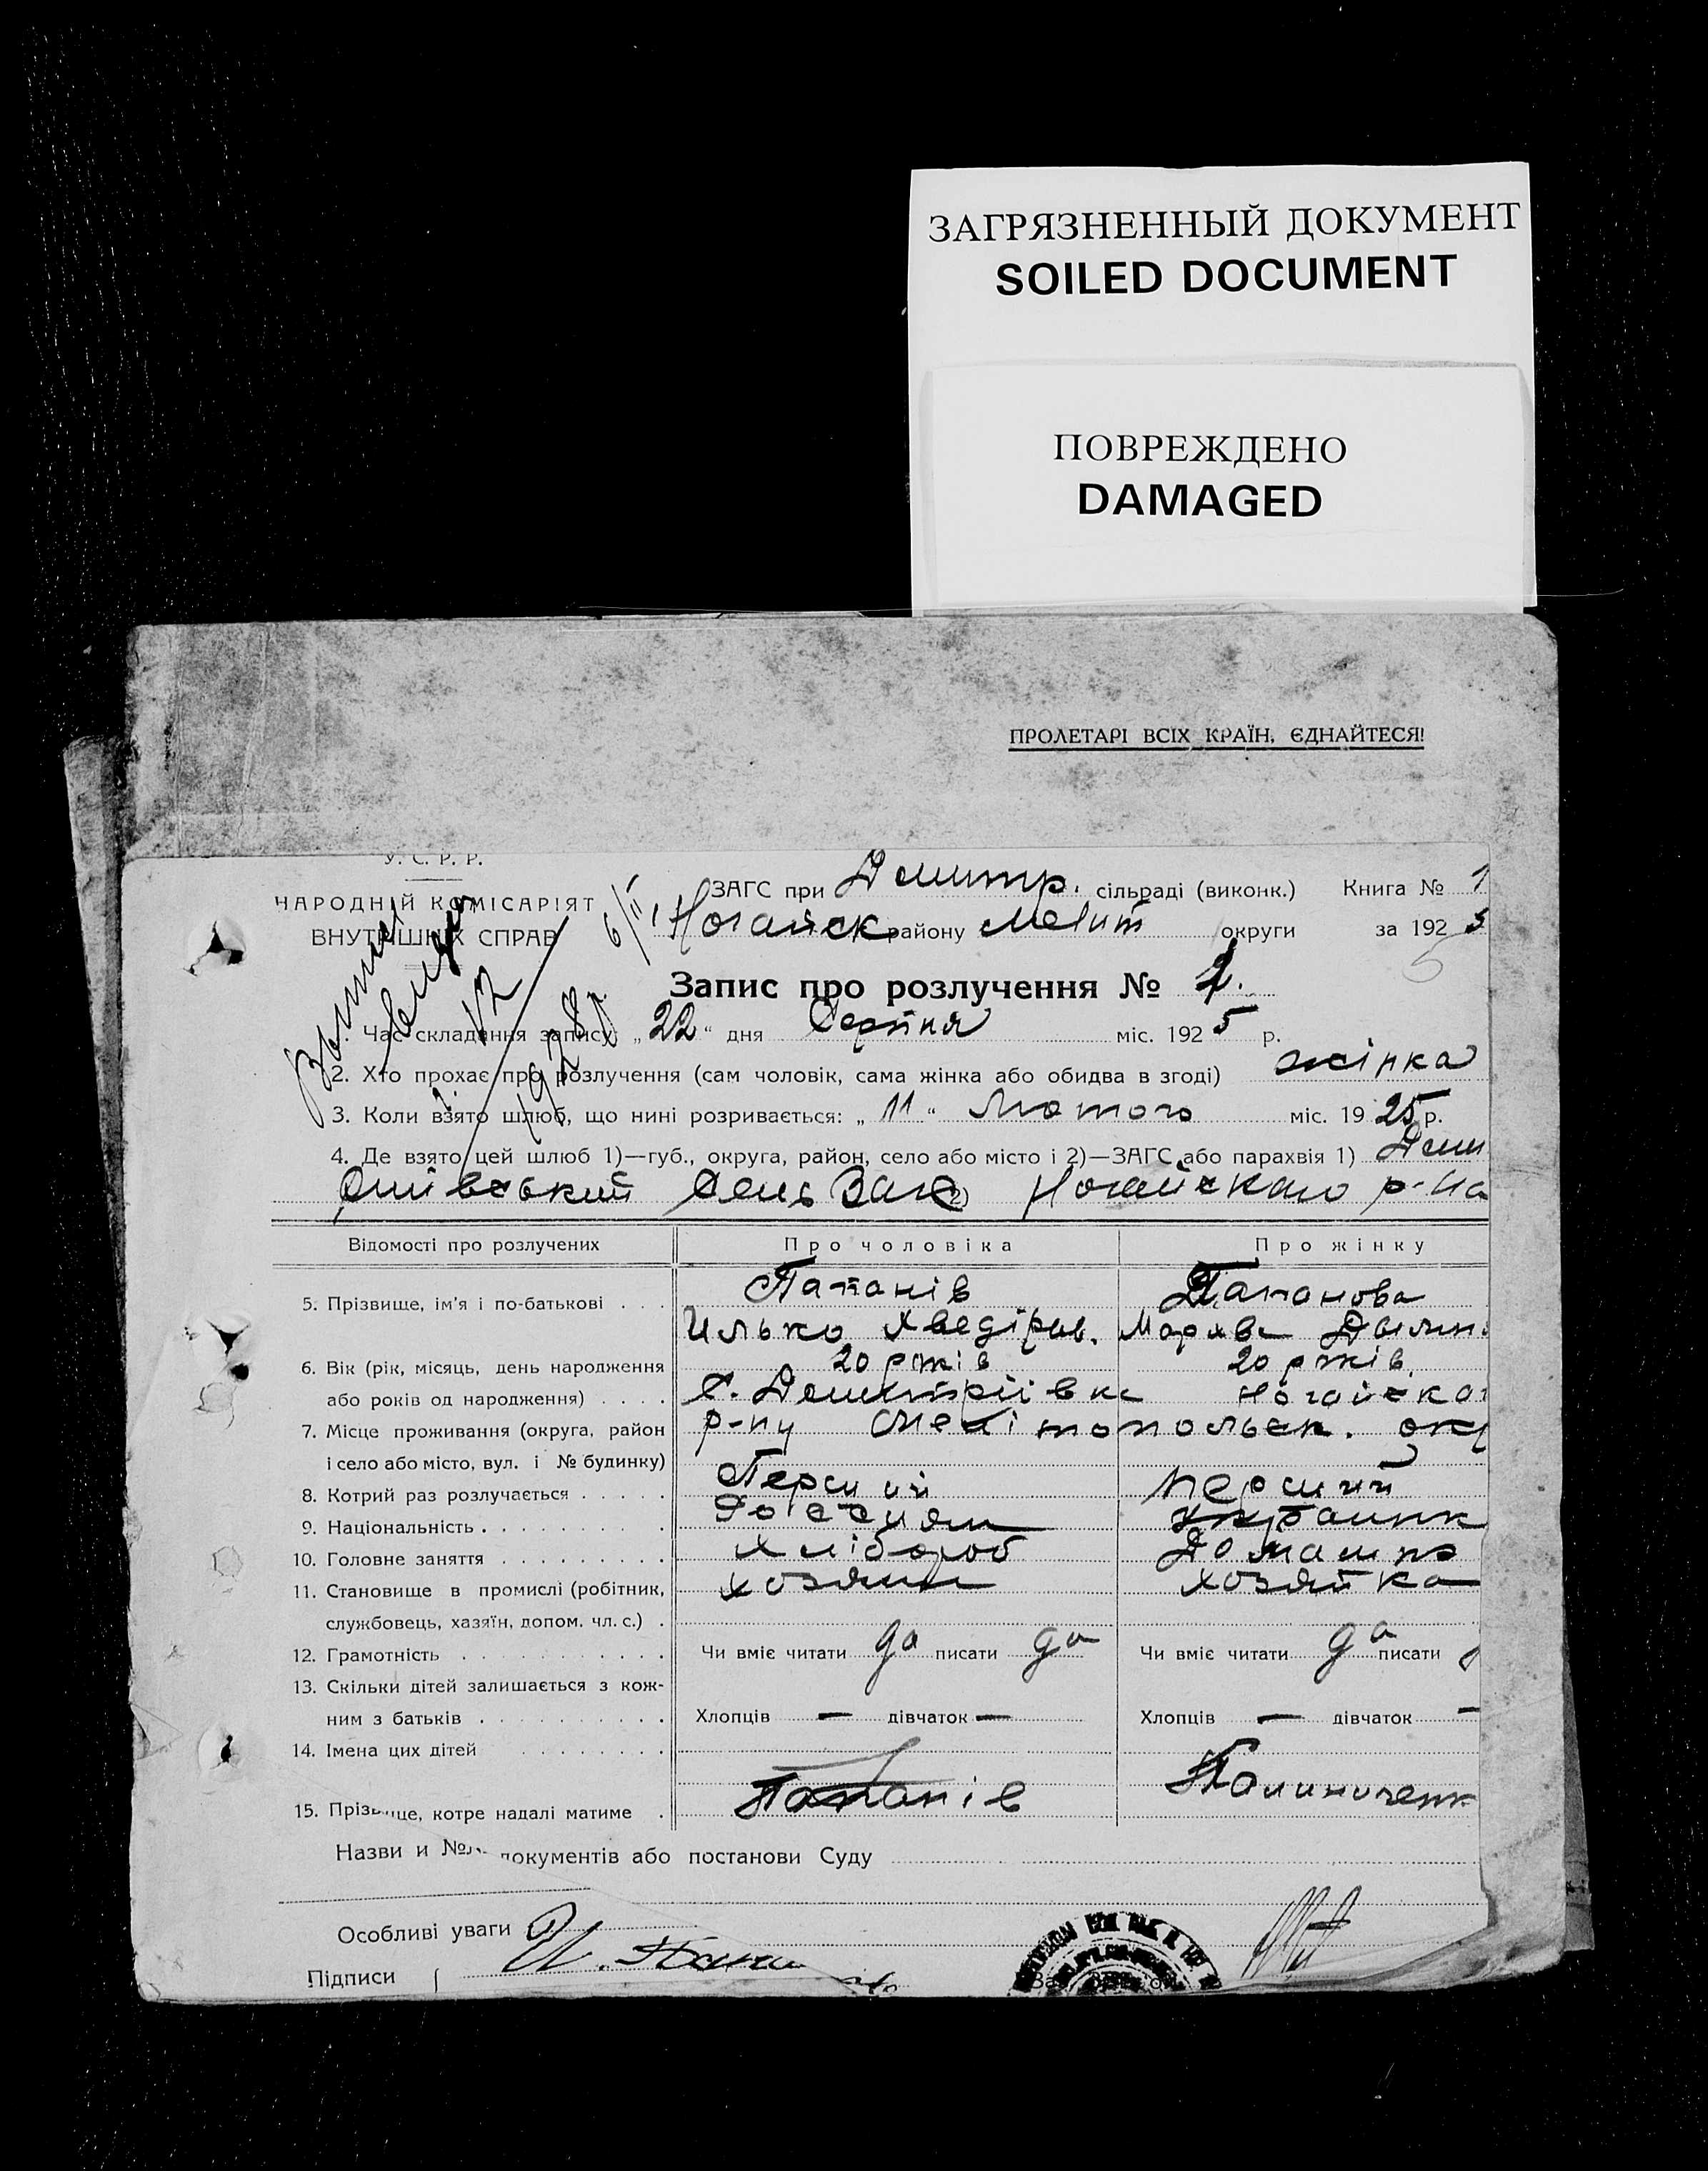 ЗАГРЯЗНЕННЫЙ ДОКУМЕНТ
SOILED DOCUMENT
ПОВРЕЖДЕНО
DAMAGED
ПРОЛЕТАРІ ВСІХ КРАЇН, ЄДНАЙТЕСЯ!
У. С. Р. Р.
НАРОДНІЙ КОМІСАРІЯТ
ВНУТРІШНІХ СПРАВ
ЗАГС при Демитр. сільраді (виконк.) Книга № 1
Ногайск району Меліт округи за 192 5
Запис про розлучення № 2.
Час складання запису: „22“ дня Серпня міс. 1925 р.
2. Хто прохає про розлучення (сам чоловік, сама жінка або обидва в згоді) жінка
3. Коли взято шлюб, що нині розривається: „11“ Лютого міс. 1925 р.
4. Де взято цей шлюб 1)—губ., округа, район, село або місто і 2)—ЗАГС або парахвія 1) Дем
2) Ногайского р-на
Відомості про розлучених Про чоловіка Про жінку
5. Прізвище, ім'я і по-батькові Папанів Папанова
Илько Хведіров.
6. Вік (рік, місяць, день народження 20 років 20 років
або років од народження) С. Демитріївка Ногайска
7. Місце проживання (округа, район р-ну Мелітопольск. окр
і село або місто, вул. і № будинку)
8. Котрий раз розлучається Перший перший
9. Національність
10. Головне заняття Хлібороб Домашня
11. Становище в промислі (робітник, хозяин хозяйка
службовець, хазяїн, допом. чл. с.)
12. Грамотність Чи вміє читати да писати да Чи вміє читати да писати
13. Скільки дітей залишається з кож-
ним з батьків Хлопців — дівчаток — Хлопців — дівчаток —
14. Імена цих дітей
15. Прізвище, котре надалі матиме Папанів
Назви и №№ документів або постанови Суду
Особливі уваги
Підписи